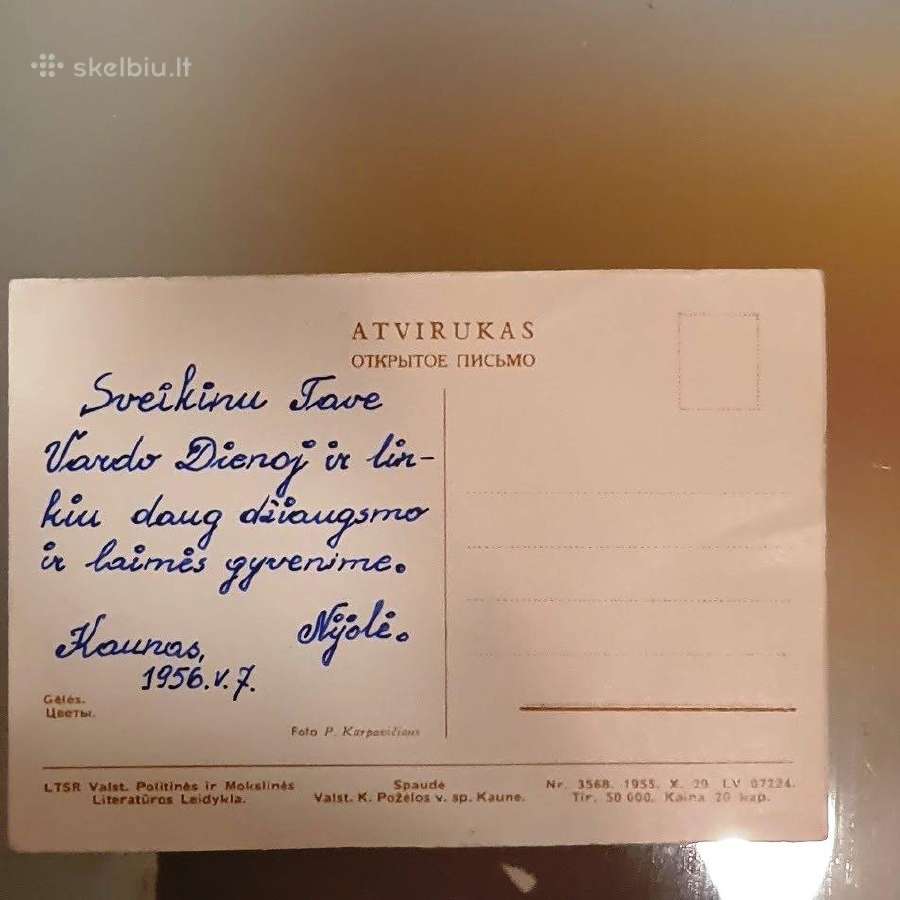 skelbiu.lt
ATVIRUKAS
ОТКРЫТОЕ ПИСЬМО
Sveikinu Tave
Vardo Dienoj ir lin-
kiu daug džiaugsmo
ir laimės gyvenime.
Nijolė.
Kaunas,
1956.V.7.
Gėlės.
Цветы.
Foto P. Karpavičiaus
LTSR Valst. Politinės ir Mokslinės
Literatūros Leidykla.
Spaudė
Valst. K. Požėlos v. sp. Kaune.
Nr. 3568. 1955. X. 29. LV 07224.
Tir. 50 000. Kaina 20 kap.